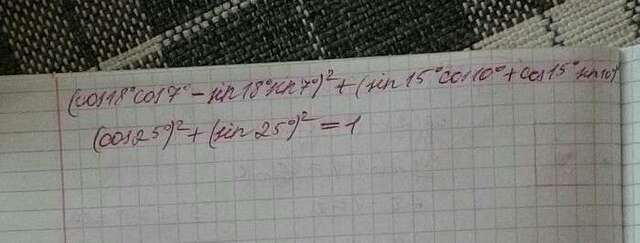 (cos18°cos7° - sin18°sin7°)² + (sin15°cos10° + cos15°sin10)
(cos25°)² + (sin25°)² = 1